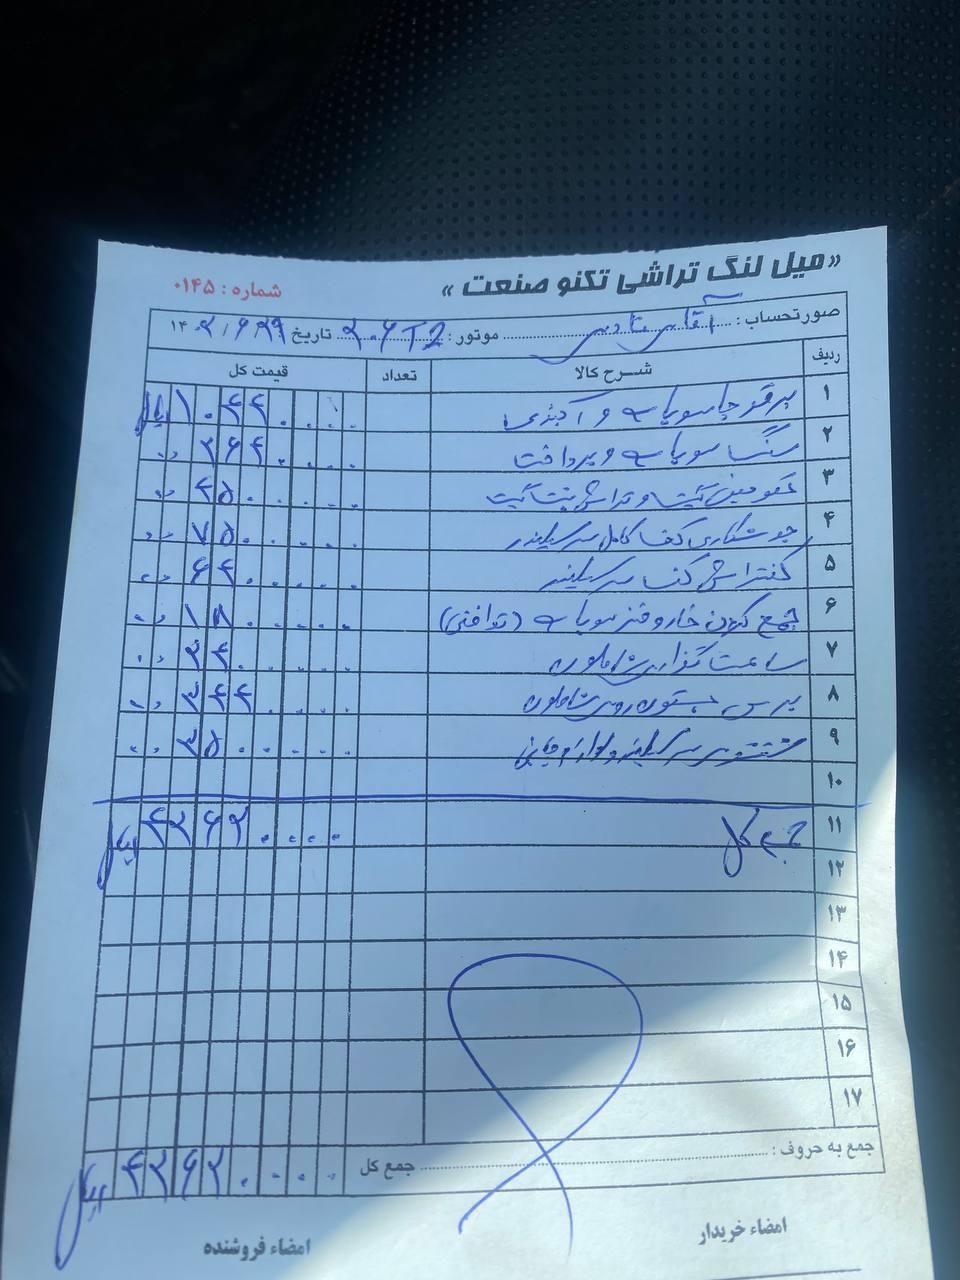 «میل لنگ تراشی تکنو صنعت»
شماره : ۰۱۴۵
صورتحساب : آقای نادری موتور : ۲۰۶ T2 تاریخ ۱۴۰۲/۶/۲۹
ردیف شـرح کالا تعداد قیمت کل
۱ برقو جا سوپاپ و آببندی ریال
۲ سنگ سوپاپ و پرداخت
۳ تعویض گیت و تراش پشت گیت ۴۵۰۰۰۰۰
۴ جوشکاری کف کامل سرسیلندر ۷۵۰۰۰۰۰
۵ کفتراش کف سرسیلندر ۶۴۰۰۰۰۰
۶ جمع کردن خار و فنر سوپاپ (توافقی) ۱۸۰۰۰۰۰
۷ ساعت گذاری شاملون
۸ پرس شاملون
۹ شستشو سرسیلندر و لوازم جانبی ۳۵۰۰۰۰۰
۱۰
۱۱ جمع کل ۴۲۶۲۰۰۰۰ ریال
۱۲
۱۳
۱۴
۱۵
۱۶
۱۷
جمع به حروف : جمع کل ۴۲۶۲۰۰۰۰ ریال
امضاء خریدار امضاء فروشنده